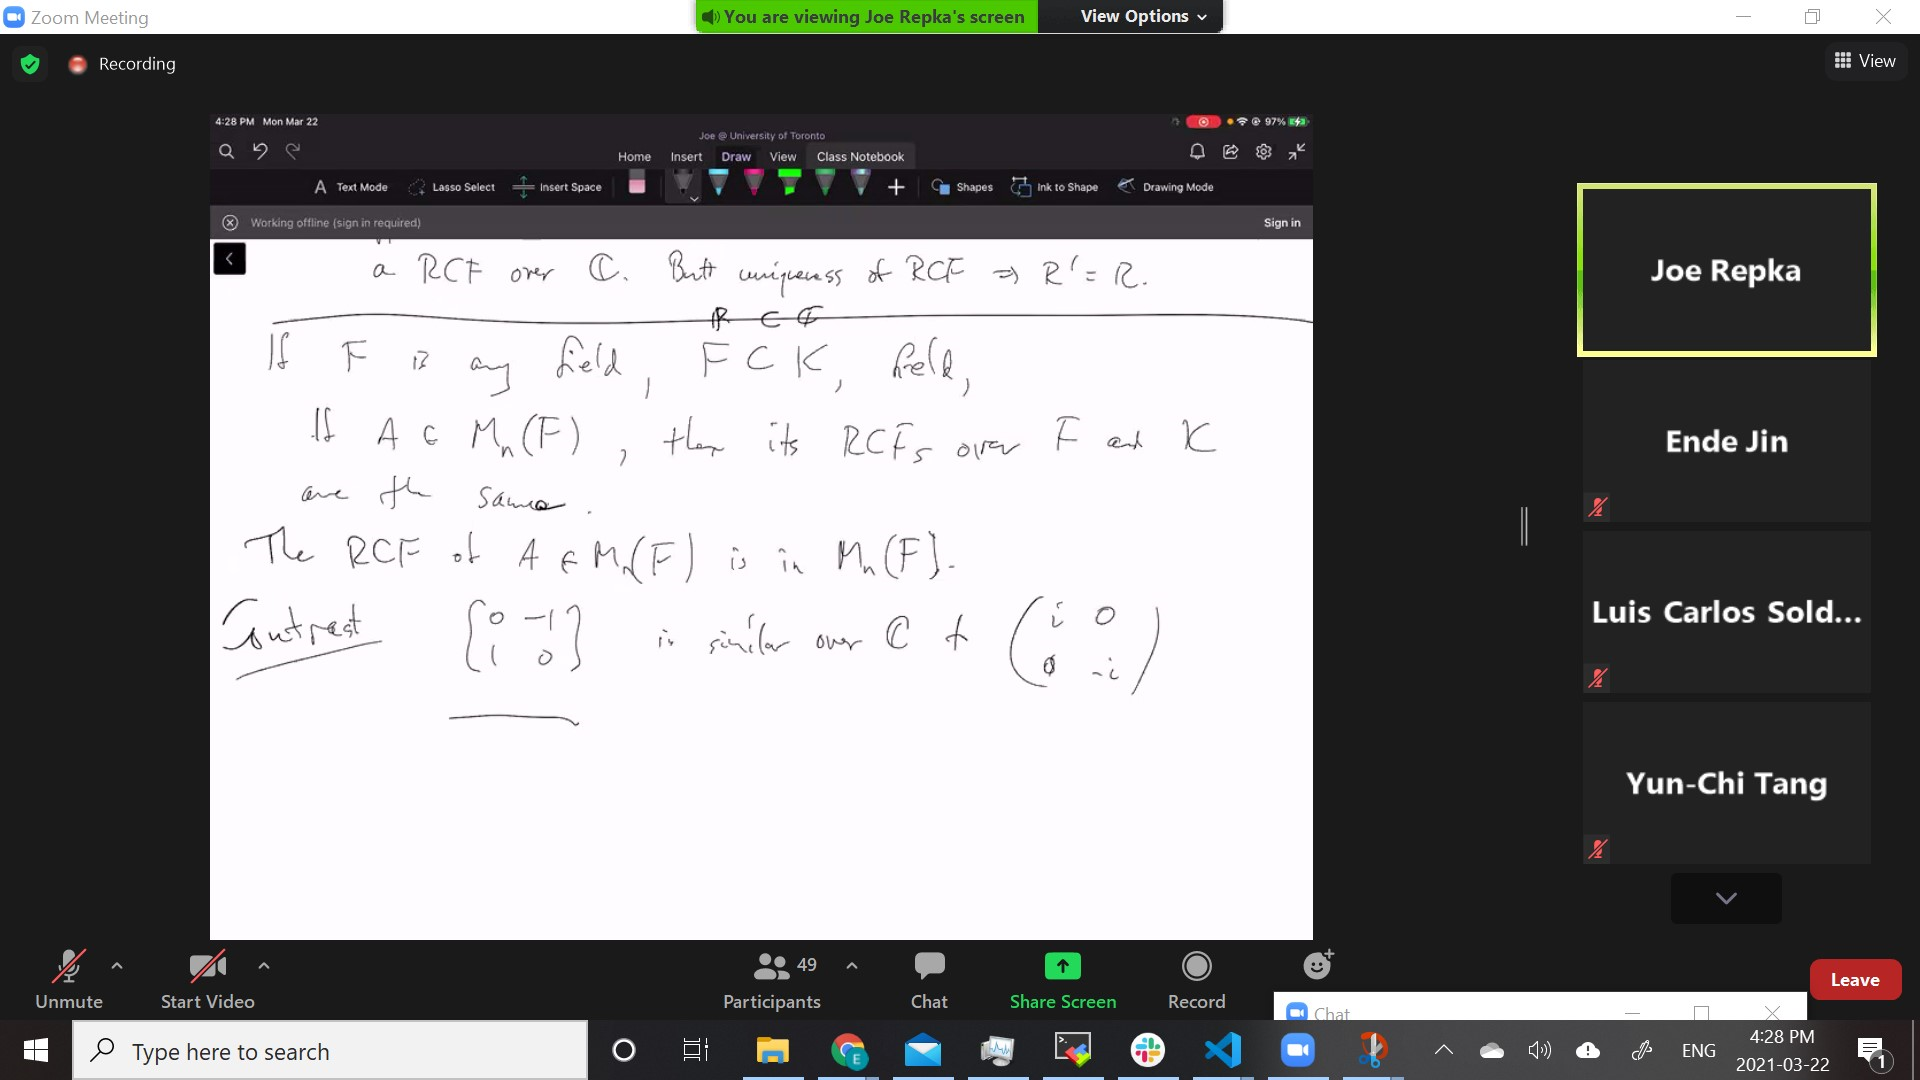 Zoom Meeting
You are viewing Joe Repka's screen
View Options
Recording
View
4:28 PM Mon Mar 22
97%
Joe @ University of Toronto
Home Insert Draw View Class Notebook
Text Mode Lasso Select Insert Space Shapes Ink to Shape Drawing Mode
Working offline (sign in required)
Sign in
a RCF over ℂ. But uniqueness of RCF ⇒ R' = R.
ℝ ⊂ ℂ
If F is any field, F ⊂ K, field,
If A ∈ Mn(F), then its RCFs over F and K
are the same.
The RCF of A ∈ Mn(F) is in Mn(F).
Contrast [0 -1 is similar over ℂ to (i 0
1 0] 0 -i)
Joe Repka
Ende Jin
Luis Carlos Sold...
Yun-Chi Tang
Unmute
Start Video
49
Participants
Chat
Share Screen
Record
Leave
Chat
Type here to search
E
ENG
4:28 PM
2021-03-22
1